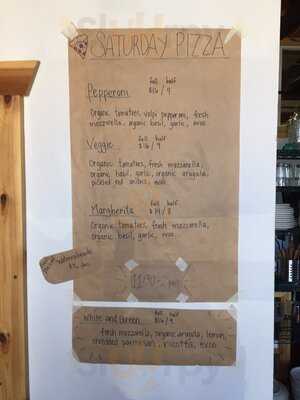 SATURDAY PIZZA
full half
Pepperoni $16 / 9
Organic tomatoes, volpi pepperoni, fresh
mozzarella, organic basil, garlic, evoo.
full half
Veggie $16 / 9
Organic tomatoes, fresh mozzarella,
organic basil, garlic, organic arugula,
pickled red onions, evoo
full half
Margherita $14 / 8
Organic tomatoes, fresh mozzarella,
organic basil, garlic, evoo.
full half
White and Green $16 / 9
fresh mozzarella, organic arugula, lemon,
shredded parmesan, ricotta, evoo